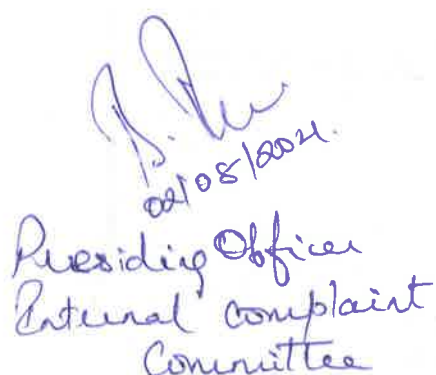 Presiding Officer
Internal complaint
Committee